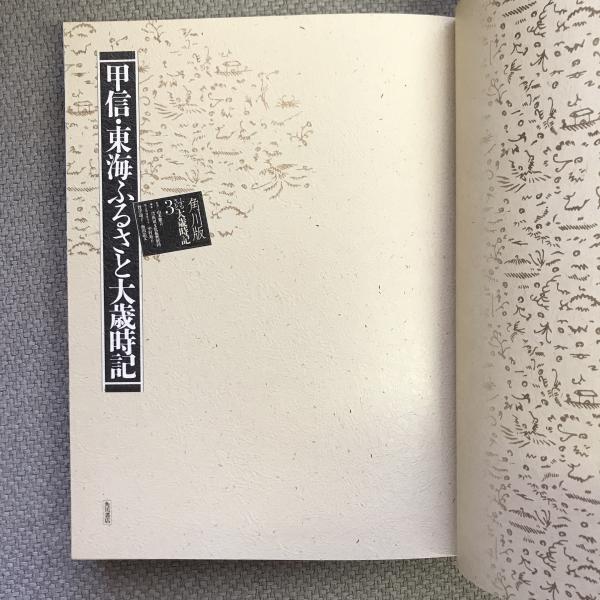 甲信・東海ふるさと大歳時記
角川版
ふるさと大歳時記
3
角川書店